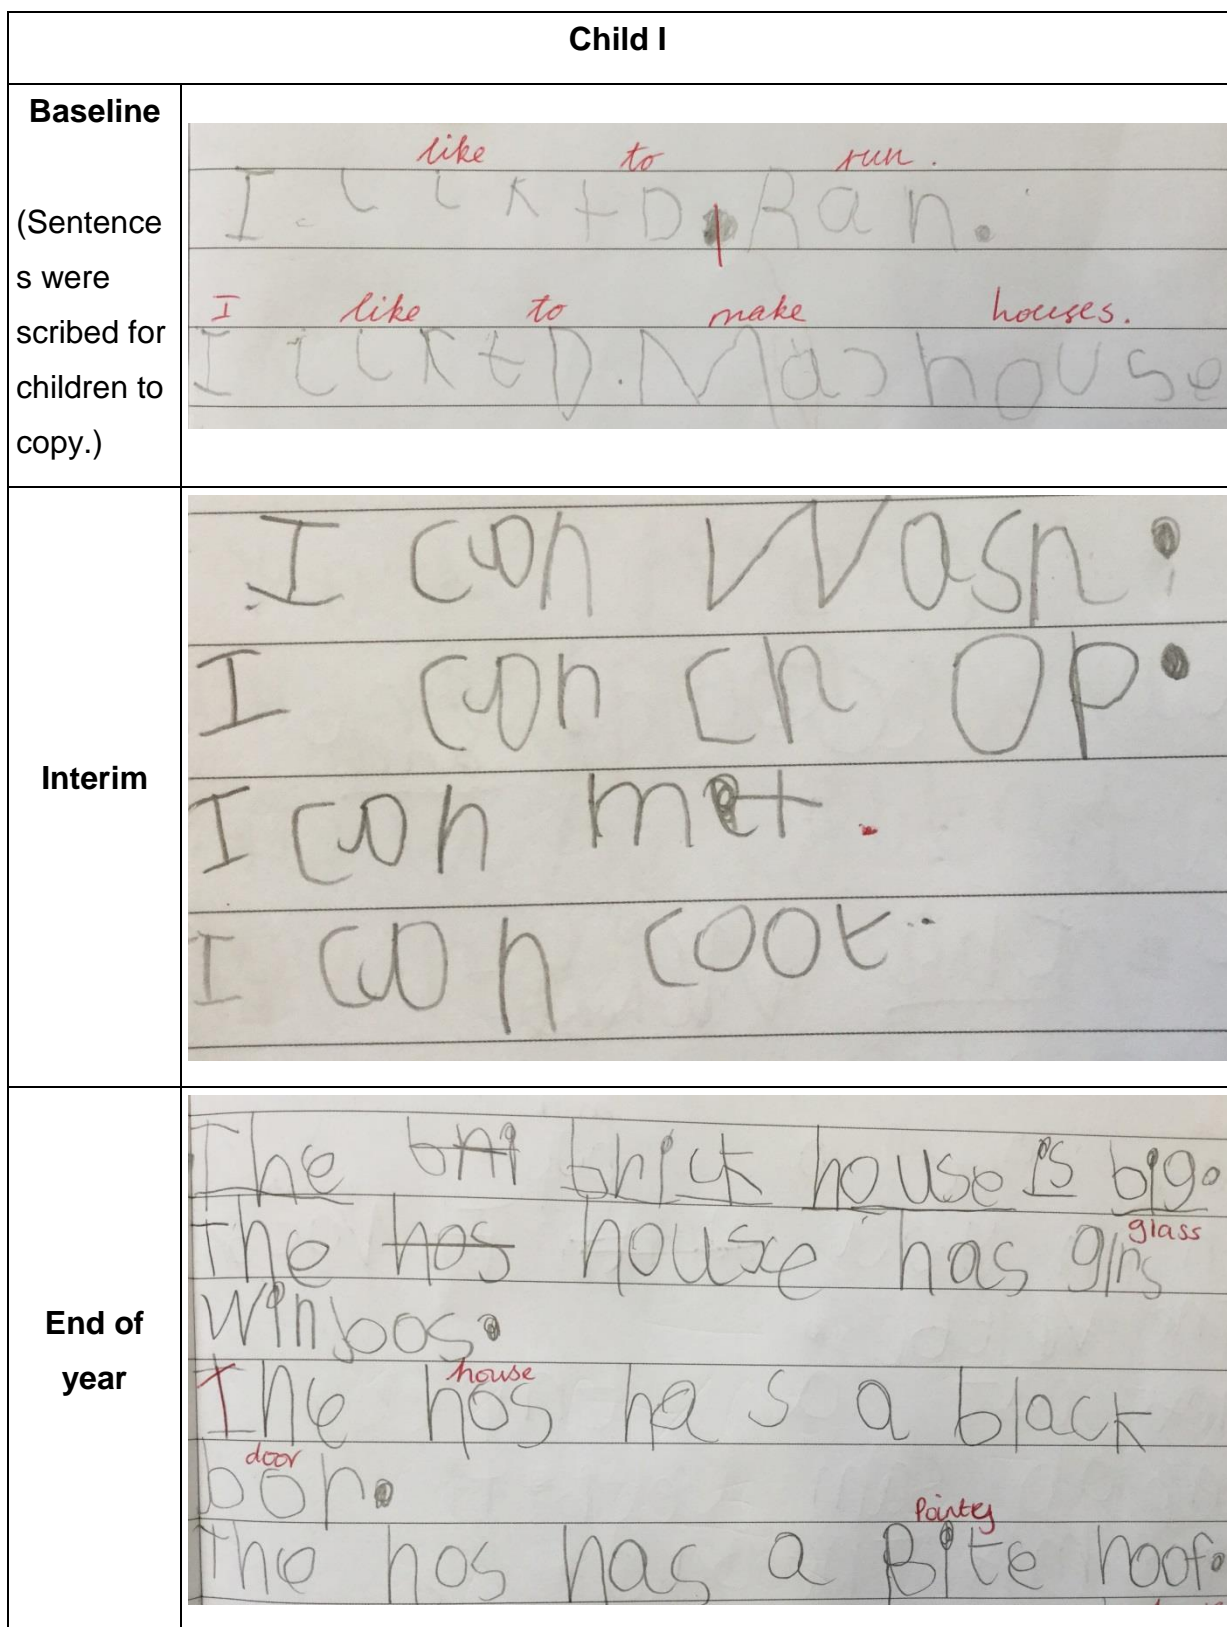 Child I
Baseline
(Sentence
s were
scribed for
children to
copy.)
like to run.
I likt D. Ran.
I like to make houses.
I likt D. Mas house
Interim
I can Wash.
I can ch op.
I can met.
I can coot.
End of
year
The bri brick house is big.
The hos house has glrs
glass
Winboos.
house
The hos has a black
door
bor.
Pointey
The hos has a Bite roof.